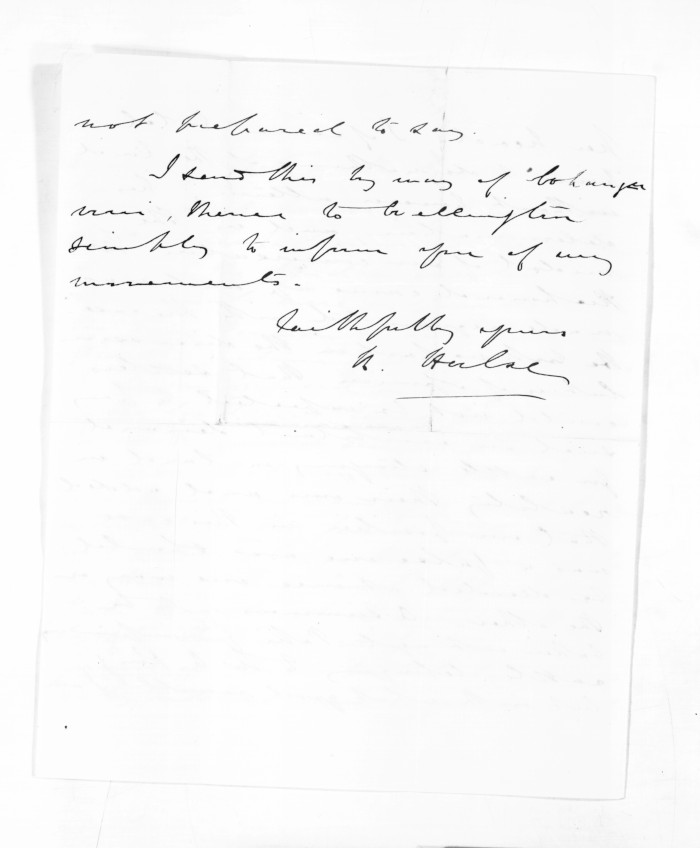 not prepared to say.
I send this by way of Wohangar
nui, thence to Wellington
simply to inform you of my
movements.
Faithfully yours
W. Hulse